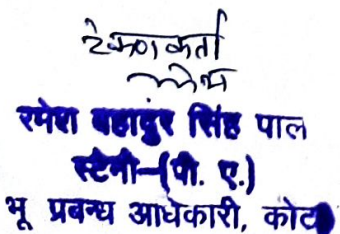 टंकणकर्ता
रमेश बहादुर सिंह पाल
स्टैनो–(पी. ए.)
भू प्रबन्ध अधिकारी, कोटा